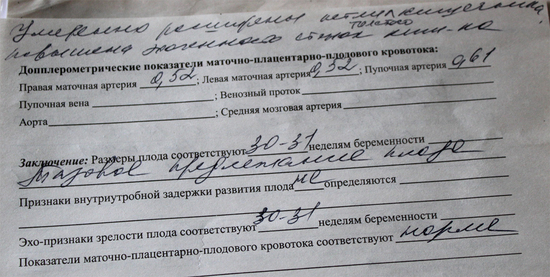 Умеренно расширены петли кишечника,
толстого
повышена эхогенность стенок киш-ка
Допплерометрические показатели маточно-плацентарно-плодового кровотока:
Правая маточная артерия 0,52; Левая маточная артерия 0,52; Пупочная артерия 0,61
Пупочная вена ; Венозный проток ;
Аорта ; Средняя мозговая артерия
Заключение: Размеры плода соответствуют 30-31 неделям беременности
Тазовое предлежание плода
Признаки внутриутробной задержки развития плода не определяются
Эхо-признаки зрелости плода соответствуют 30-31 неделям беременности
Показатели маточно-плацентарно-плодового кровотока соответствуют норме